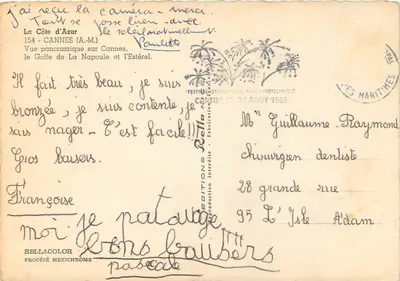 j'ai reçu la caméra - merci.
Tout se passe bien - avec
le soleil naturellement
Paulette
La Côte d'Azur
154 - CANNES (A.-M.)
Vue panoramique sur Cannes,
le Golfe de La Napoule et l'Estérel.
Il fait très beau, je suis
bronzée, je suis contente, je
sais nager - C'est facile !!!
Gros baisers.
Françoise
moi je patauge
bons baisers
pascale
RELLACOLOR
PROCÉDÉ MEXICHROME
EDITIONS Rella
MARITIMES
Mr Guillaume Raymond
chirurgien dentiste
28 grande rue
95 L'Isle Adam